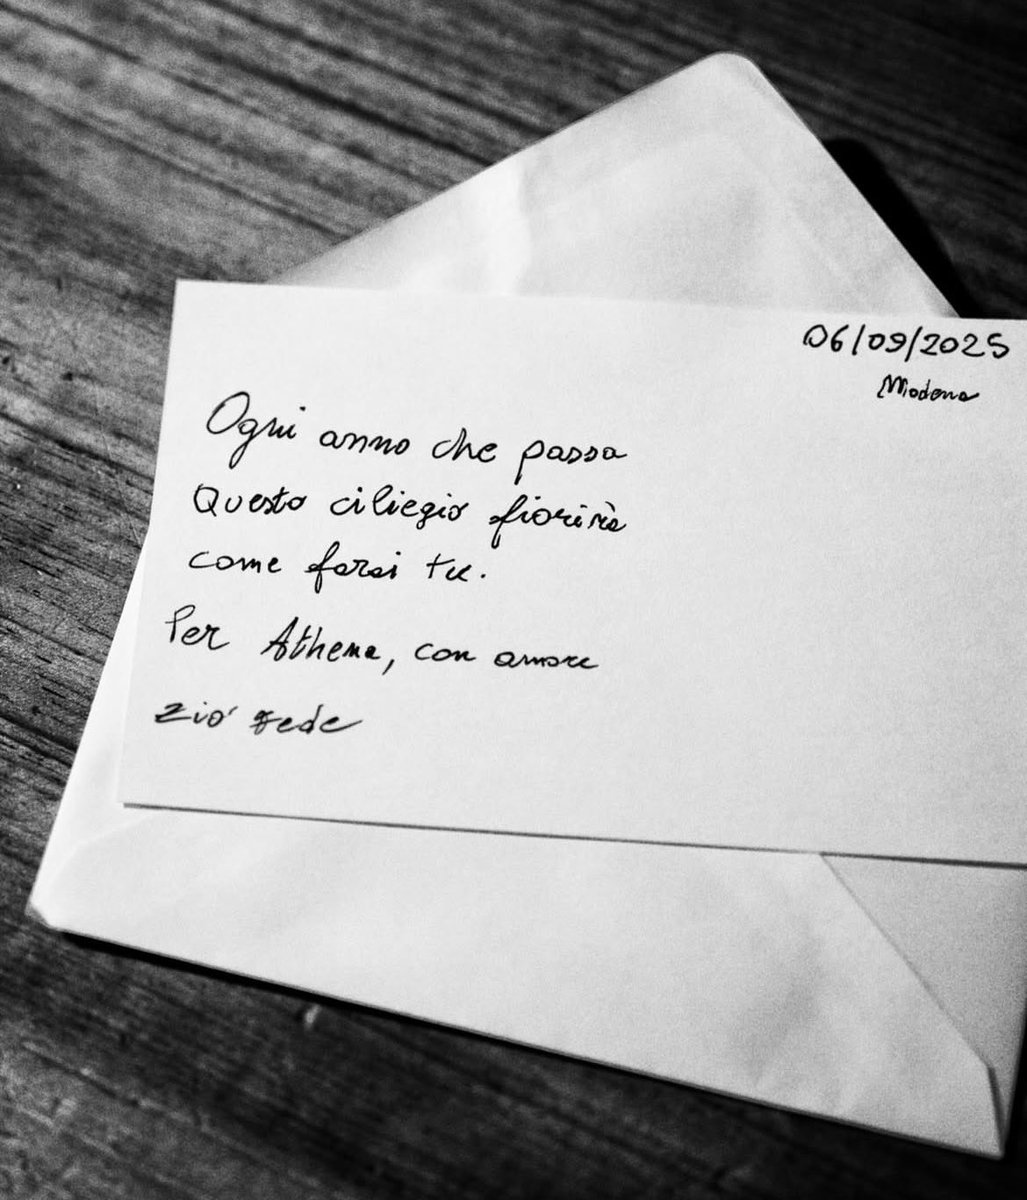 06/09/2025
Modena
Ogni anno che passa
Questo ciliegio fiorirà
come farai tu.
Per Athena, con amore
zio' Fede